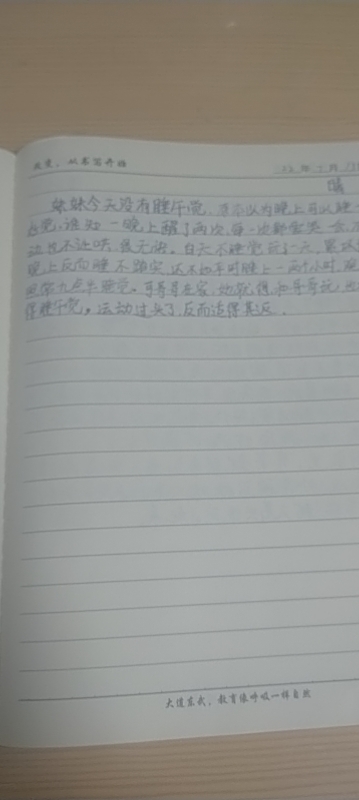 改变，从书写开始
年 月
晴
妹妹今天没有睡午觉，原本以为晚上可以睡一
觉，谁知一晚上醒了两次，每一次都要哭一会，不
动也不让哄，很无奈。白天不睡觉玩了一天，累
晚上反而睡不踏实，还不如平时睡上一两个小时，
九点半睡觉。可哥哥在家，她就得和哥哥玩，
得睡午觉。运动过头了，反而适得其反。
大道东武，教育像呼吸一样自然